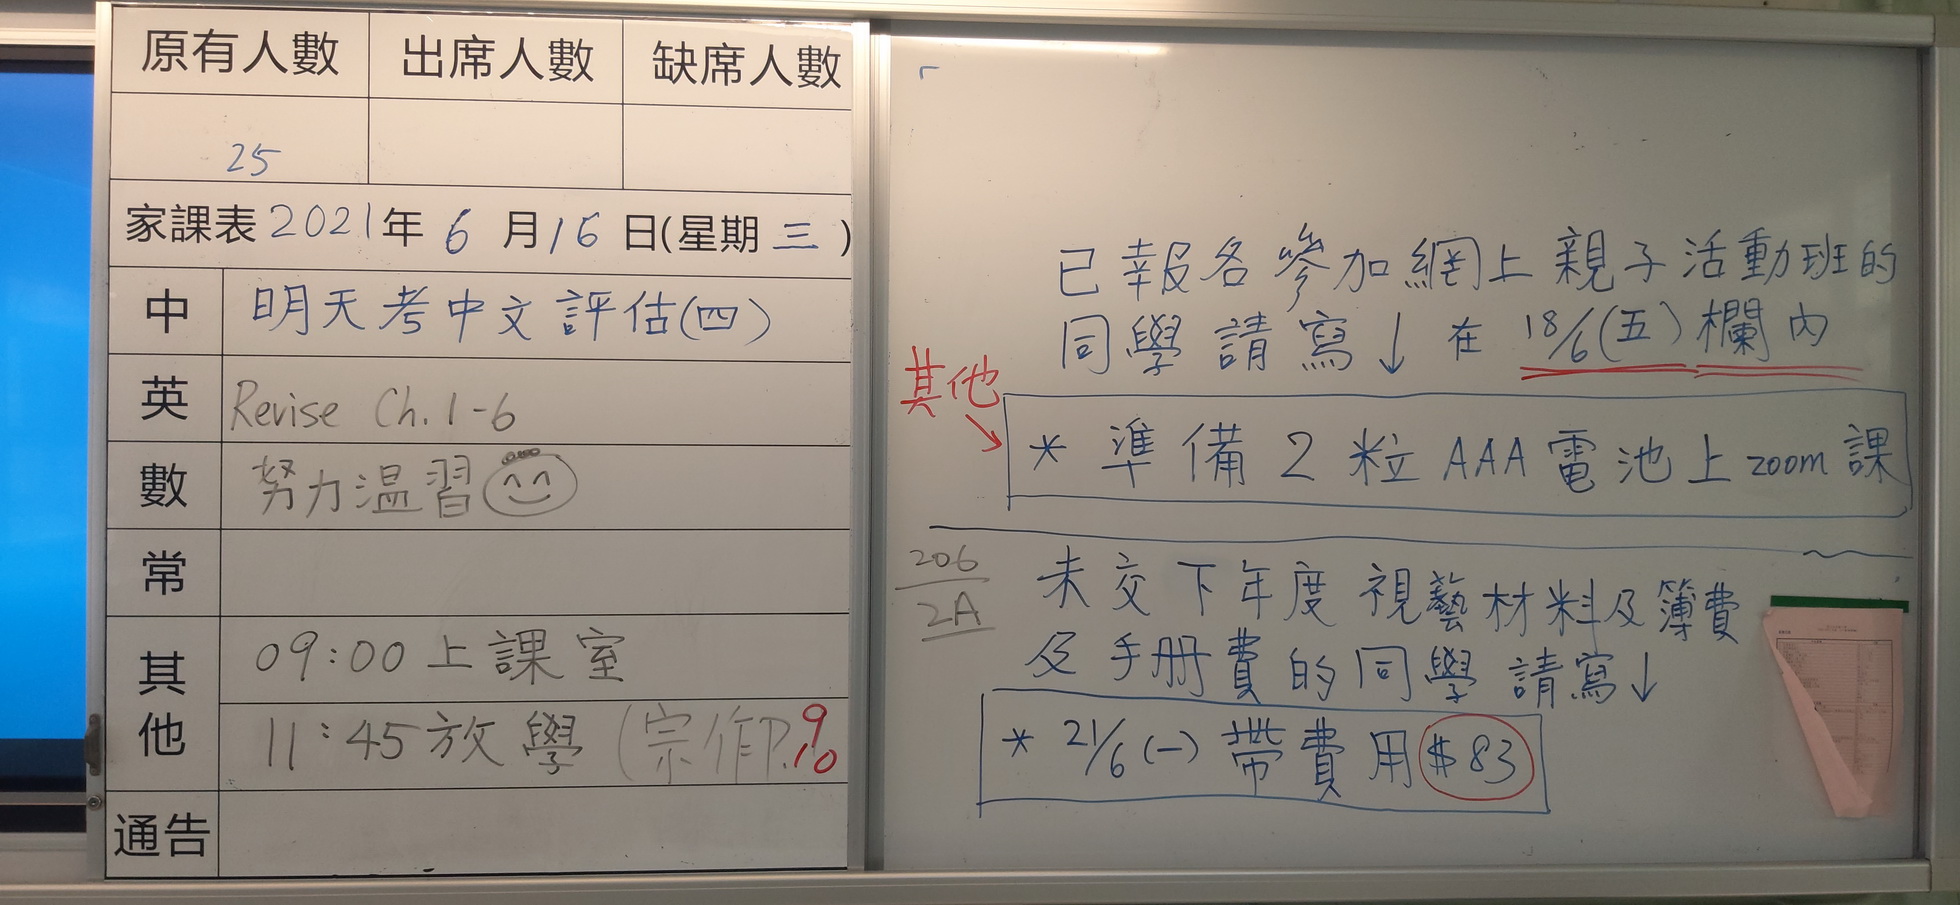 原有人數 出席人數 缺席人數
25
家課表 2021年 6 月 16 日(星期 三 )
中 明天考中文評估(四)
英 Revise Ch. 1-6
數 努力溫習
常
其他 09:00 上課室
11:45 放學
通告
已報名參加網上親子活動班的
同學請寫↓在 18/6(五)欄內
其他
* 準備 2 粒 AAA 電池上 zoom 課
206
2A
未交下年度視藝材料及簿費
及手册費的同學請寫↓
* 21/6 (一) 帶費用 $83